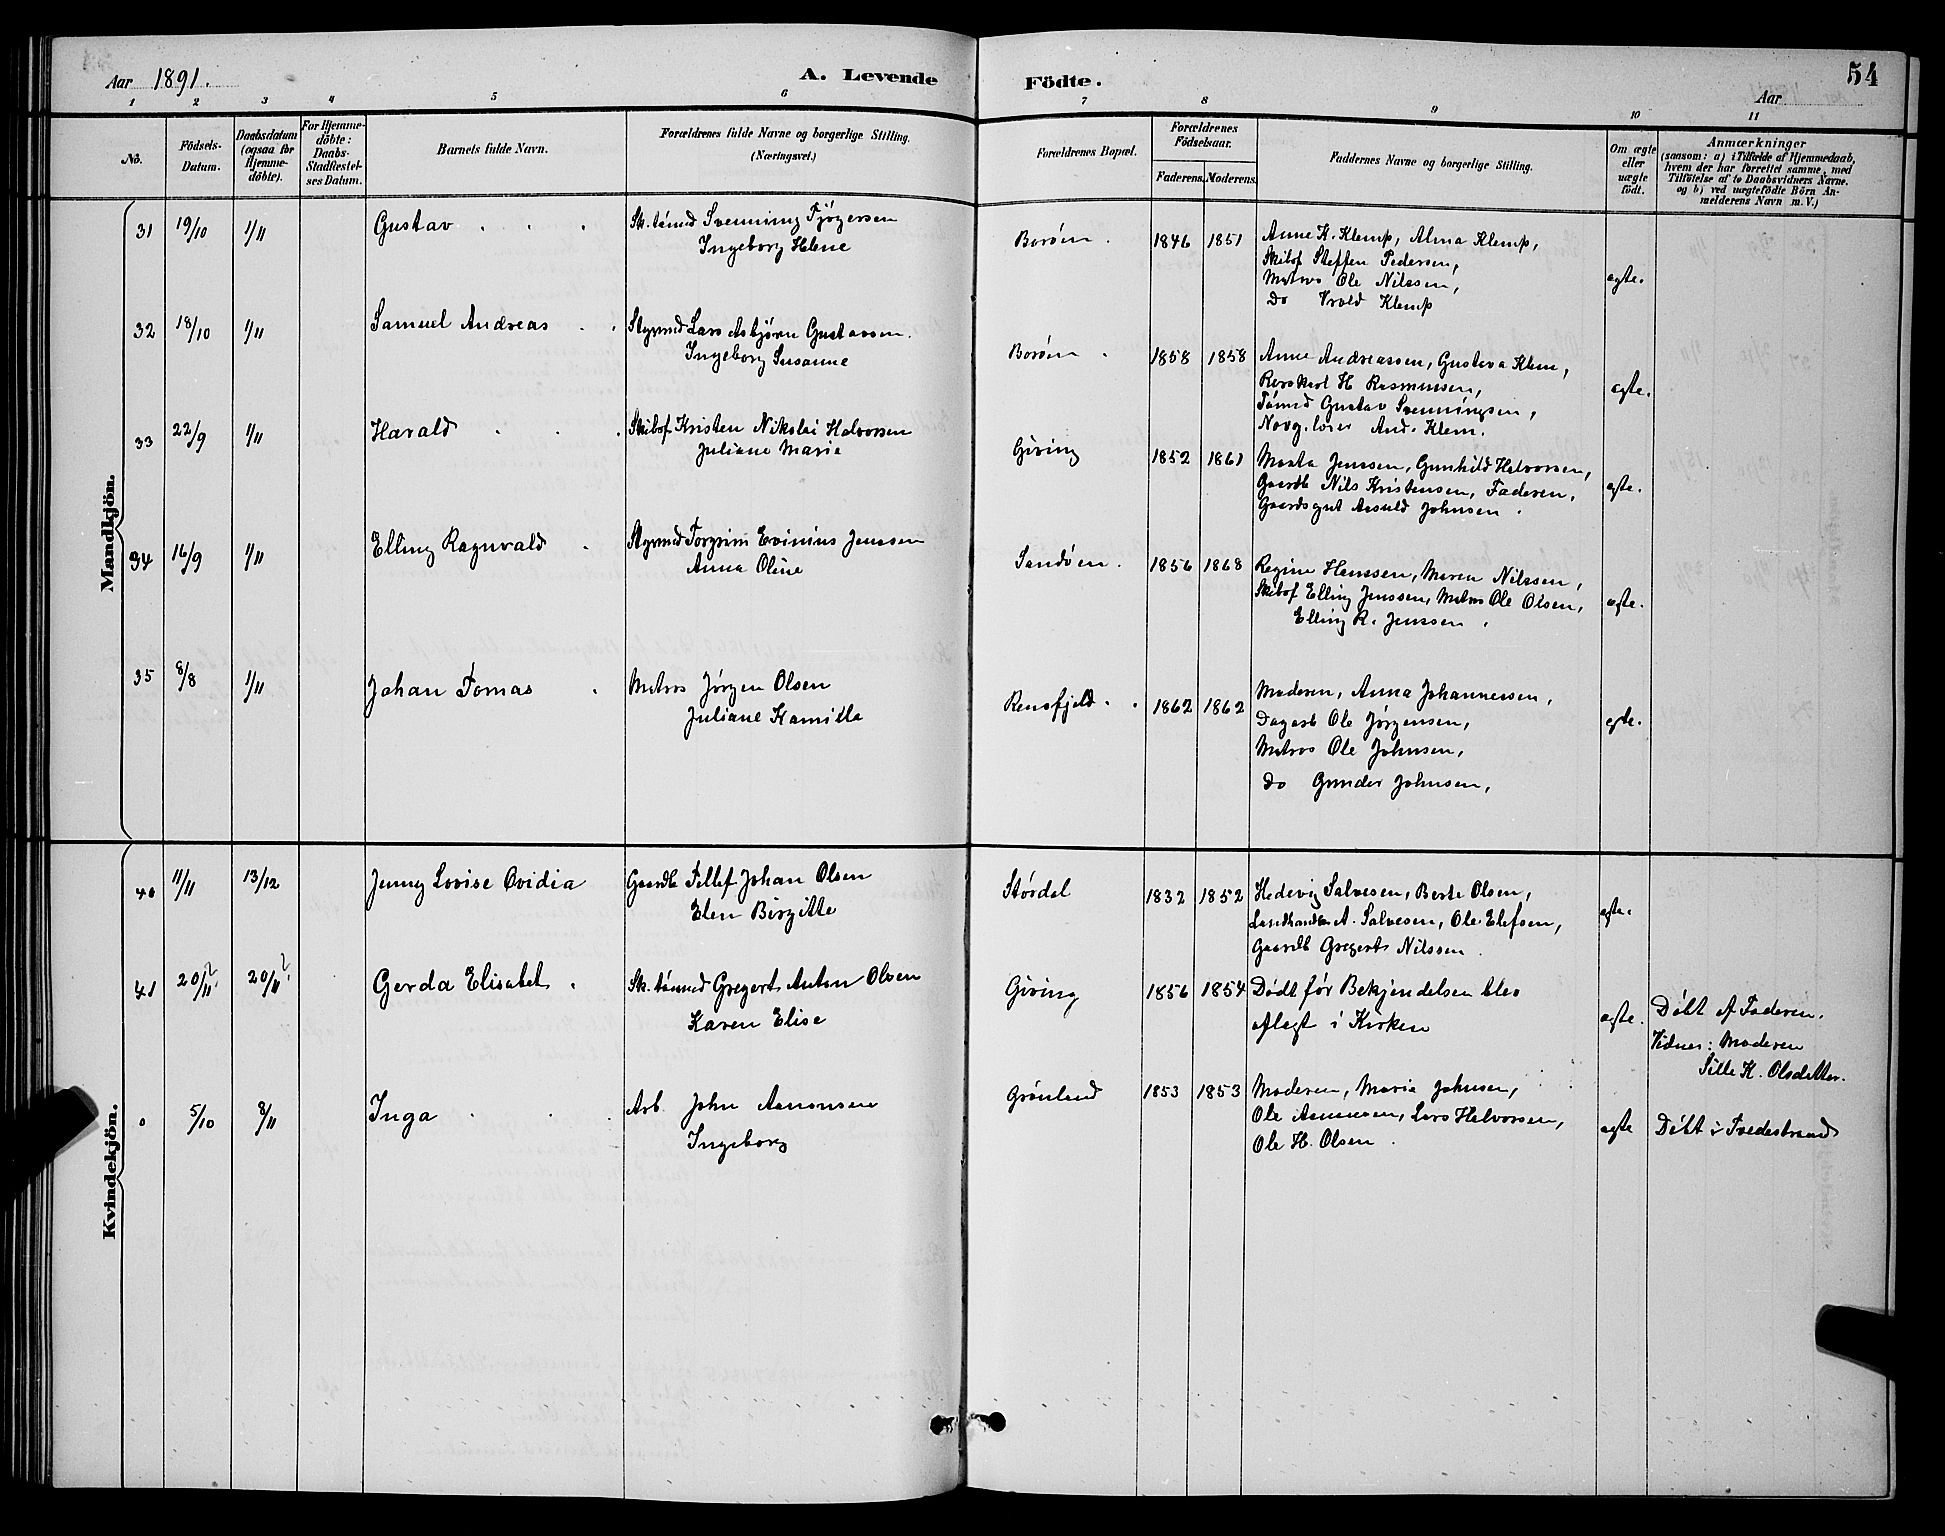 Aar 1891.
A. Levende Födte.
54
Aar
1 2 3 4 5 6 7 8 9 10 11
No.
Födsels-Datum.
Daabsdatum (ogsaa for Hjemme-döbte).
For Hjemme-döbte: Daabs-Stadfæstel-ses Datum.
Barnets fulde Navn.
Forældrenes fulde Navne og borgerlige Stilling. (Næringsvei.)
Forældrenes Bopæl.
Forældrenes Födselsaar.
Faderens. Moderens.
Faddernes Navne og borgerlige Stilling.
Om ægte eller uægte födt.
Anmærkninger
(saasom: a) i Tilfælde af Hjemmedaab,
hvem der har forrettet samme, med
Tilföielse af to Daabsvidners Navne.
og b) ved uægtefödte Börn An-
melderens Navn m. V.)
Mandkjön.
31 19/10 1/11 Gustav Sk. tömmd Svenning Tjøgersen Borøen. 1846 1851 Anne K. Klemp, Alma Klemp,
Ingeborg Helene Skibsf Steffen Pedersen,
Matros Ole Nilssen, ægte.
Do Vrold Klemp
32 18/10 1/11 Samuel Andreas Styrmd Lars Asbjørn Gustavsen. Borøen 1858 1858 Anne Andreassen, Gustava Klem,
Ingeborg Susanne H Rasmussen, ægte.
Tömmd Gustav Svenningsen,
And. Klem.
33 22/9 1/11 Harald Skibsf Kristen Nikolai Halvorsen Giving 1852 1861 Marta Jenssen, Gunhild Halvorsen,
Juliane Marie Gaardb Nils Kristensen, Faderen, ægte.
Gaardsgut Johnsen.
34 16/9 1/11 Elling Ragnvald Styrmd Torgrim Evinius Jenssen Sandøen. 1856 1868 Regine Hanssen, Maren Nilssen,
Anna Oline Skibsf Elling Jenssen, Matros Ole Olsen, ægte.
Elling R. Jenssen.
35 8/8 1/11 Johan Tomas Matros Jörgen Olsen Rensfjeld. 1862 1862 Moderen, Anna Johannessen,
Juliane Kamilla Dagarb Ole Jörgensen, ægte.
Matros Ole Johnsen,
Do Gunder Johnsen,
Kvindekjön.
40 11/11 13/12 Jenny Lovise Ovidia Gaardb Tellef Johan Olsen Stördal 1832 1852 Hedevig Salvesen, Berte Olsen,
Elen Birgitte Landhandler A. Salvesen, Ole Elefsen, ægte.
Gaardb Gregert Nilssen.
41 20/11? 20/11? Gerda Elisabet. Sk. tömmd Gregert Anton Olsen Giving 1856 1854 Dødt før Bekjendelsen blev
Karen Elise aflagt i Kirken ægte. Döbt af Faderen.
Vidner: Moderen
Sille K. Olsdatter.
0 5/10 8/11 Inga Arb John Aanonsen Grønland 1853 1853 Moderen, Maria Johnsen,
Ingeborg Ole Aanonsen, Lars Halvorsen, ægte Döbt i Tvedestrand
Ole H. Olsen.